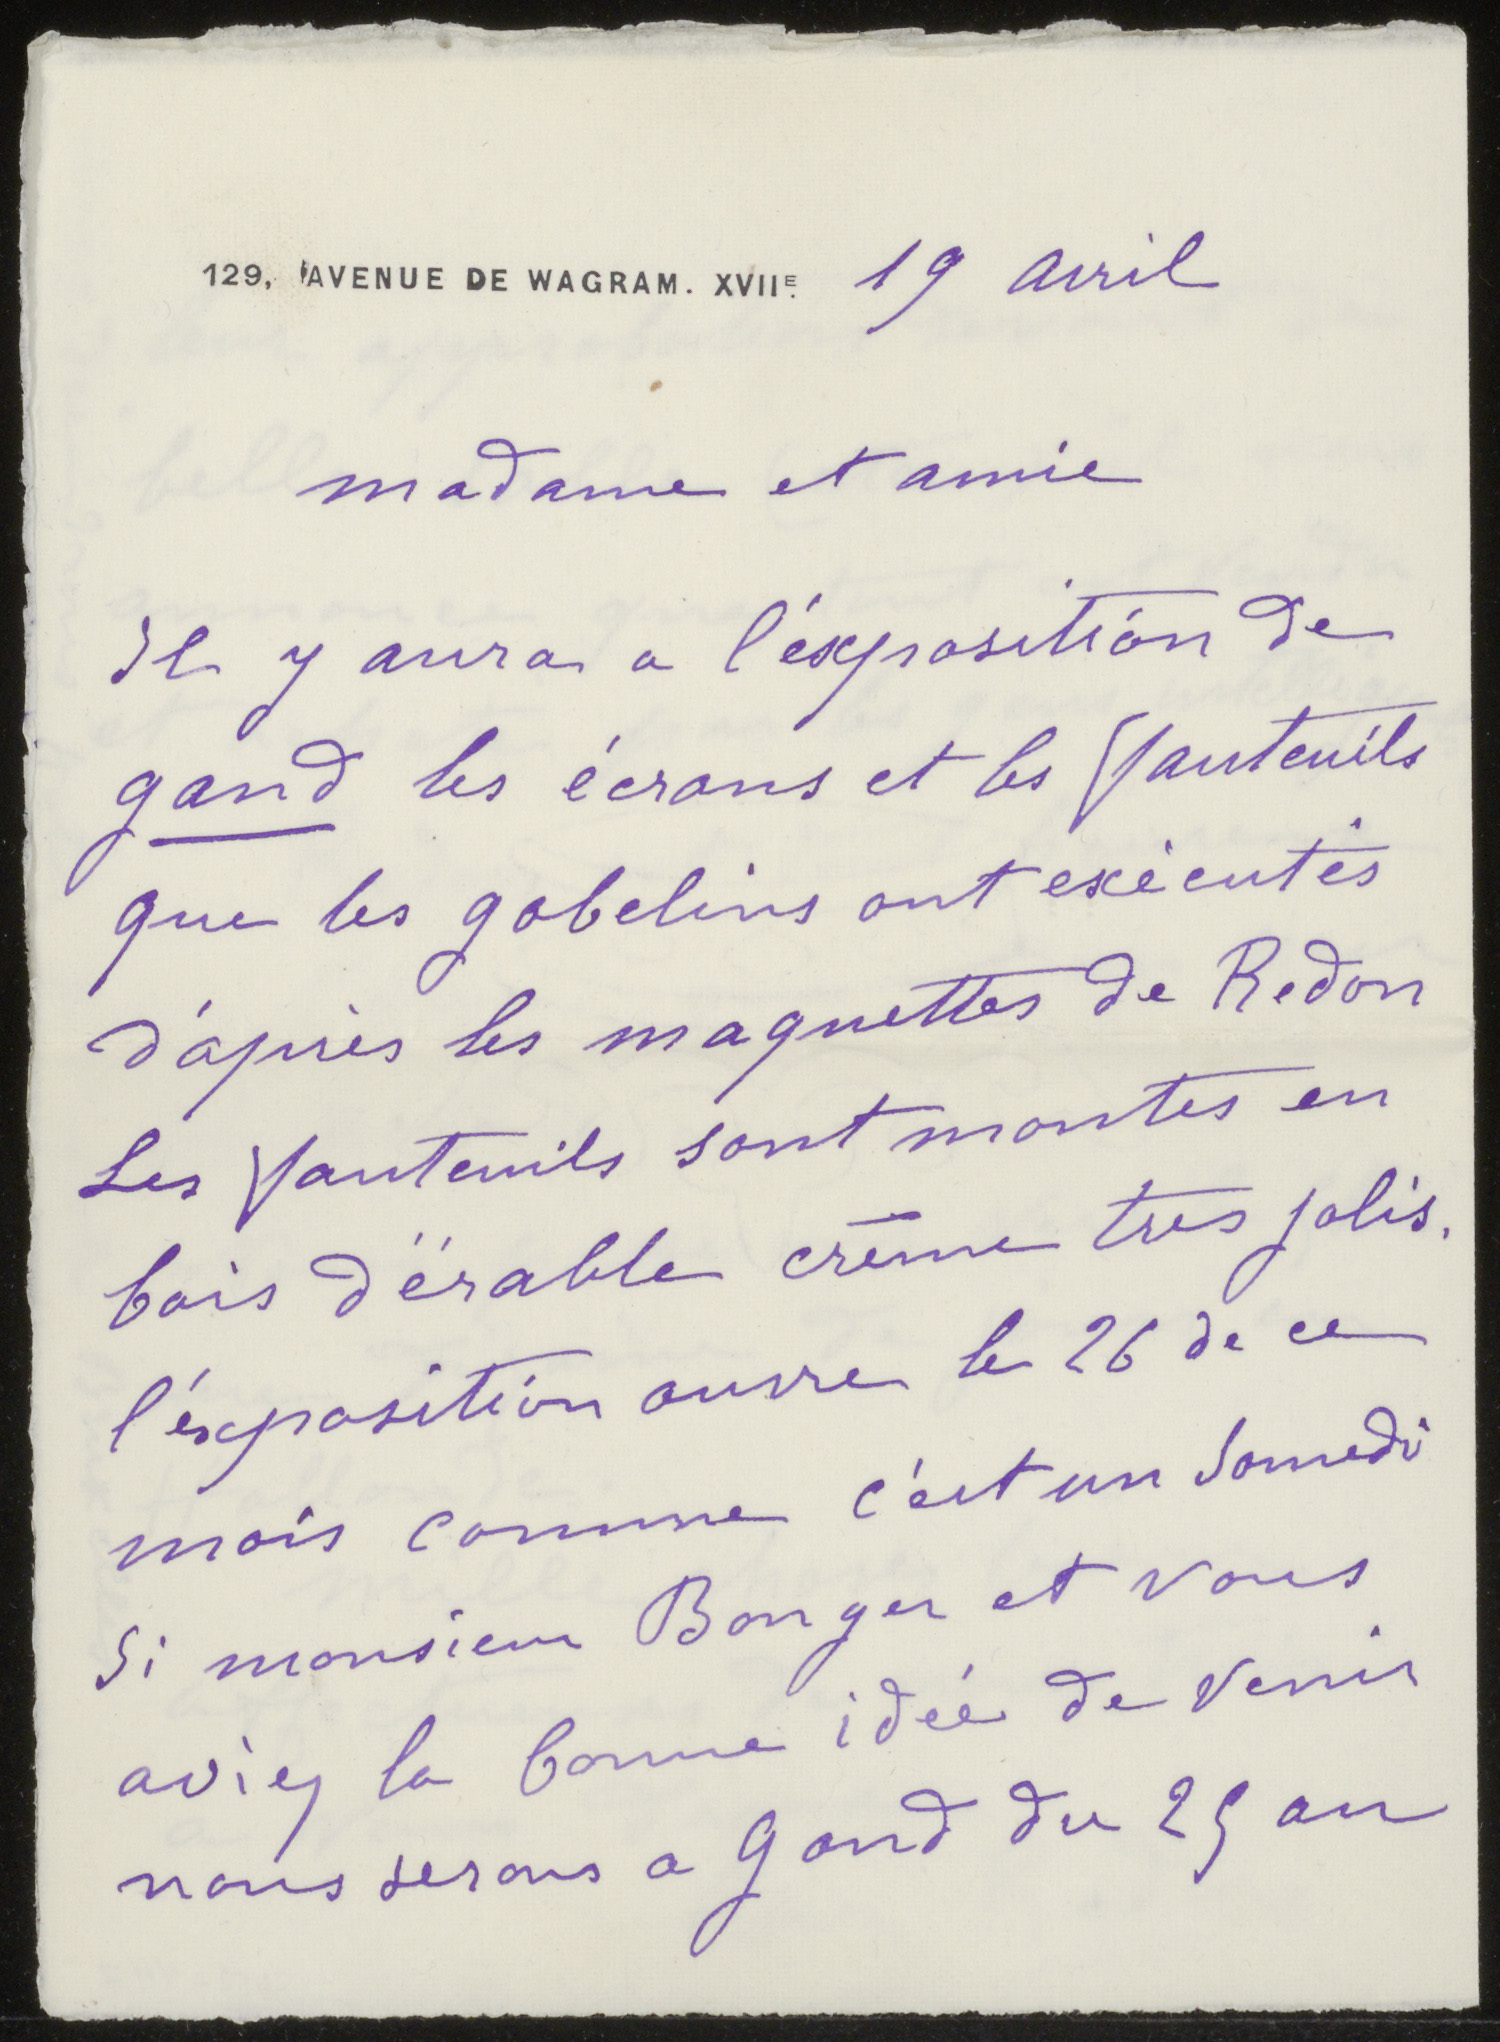 129, AVENUE DE WAGRAM. XVIIE. 19 avril
madame et amie
Il y aura a l'éxposition de
gand les écrans et les fauteuils
que les gobelins ont exécutés
d'après les maquettes de Redon
Les fauteuils sont montes en
bois d'érable crême tres jolis.
l'éxposition ouvre le 26 de ce
mois comme c'est un Samedi
Si monsieur Bonger et vous
aviez la bonne idée de venir
nous serons a Gand du 25 au